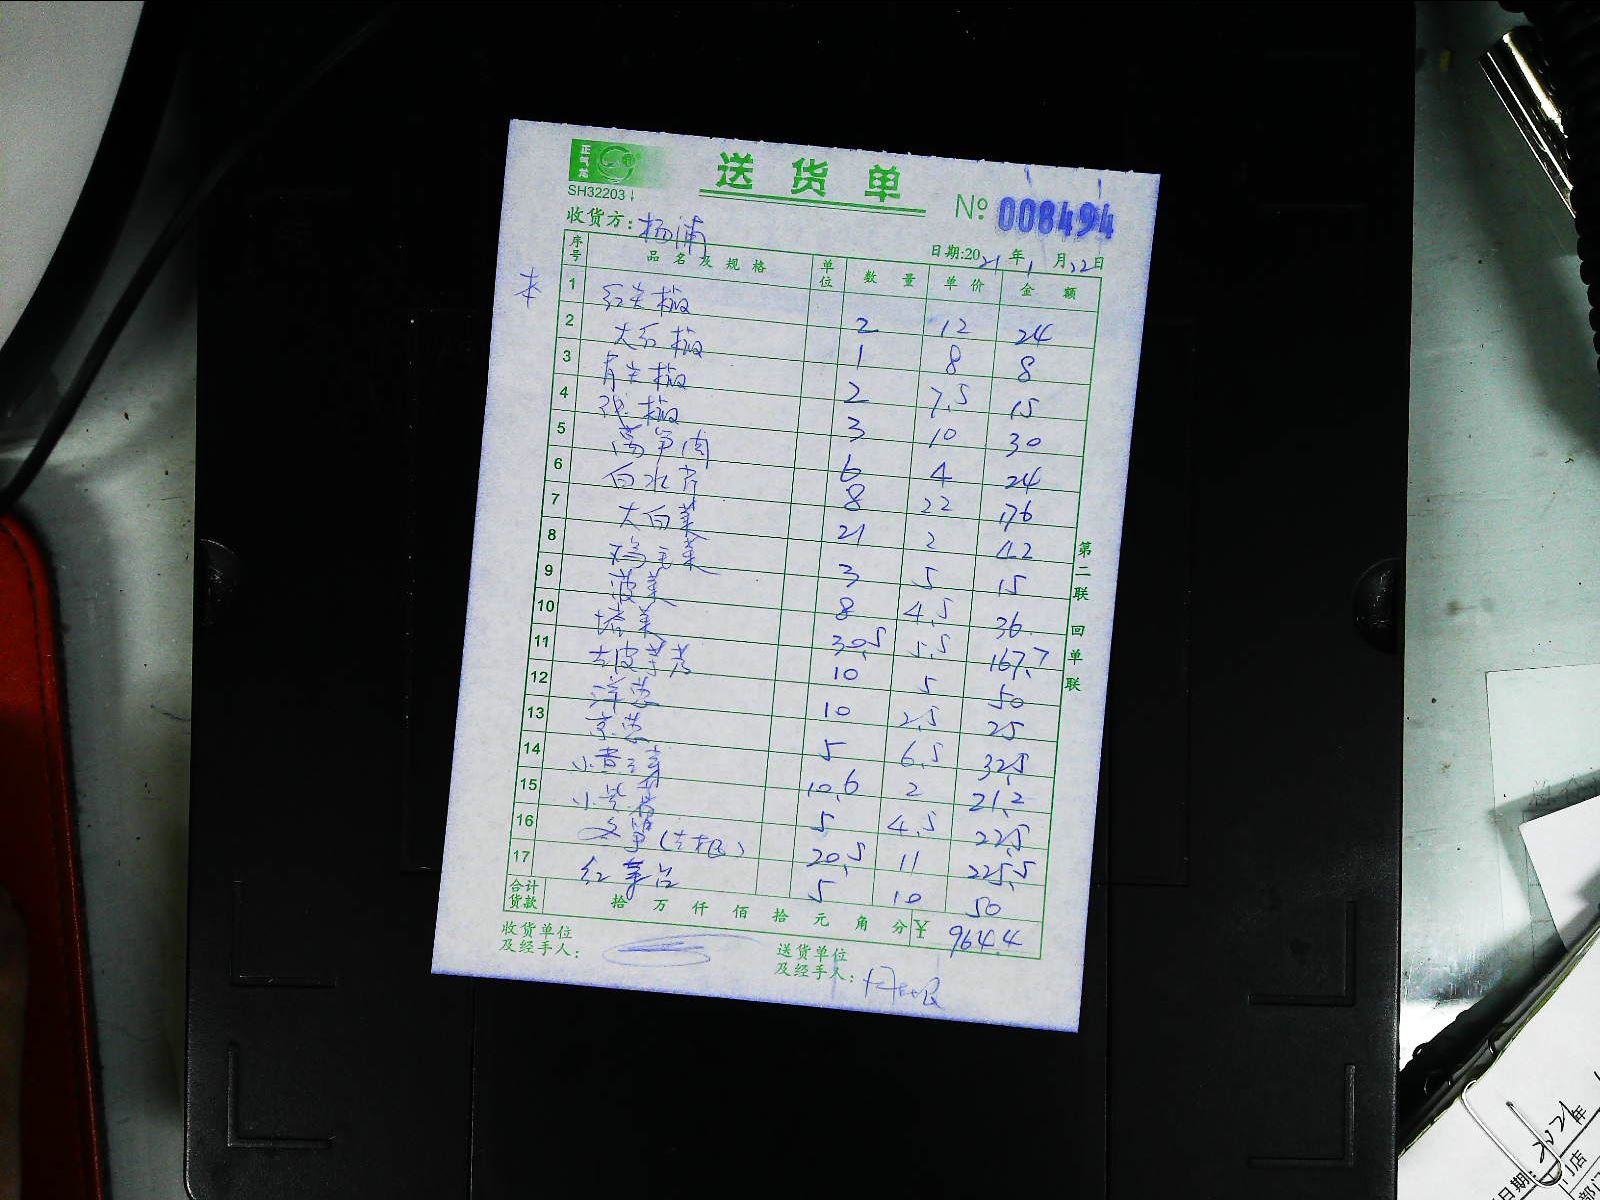 正气龙
送货单
SH32203
№ 008494
收货方: 杨浦
日期:2021年1月22日
序号 品名及规格 单位 数量 单价 金额
本
1 红尖椒 2 12 24
2 大红椒 1 8 8
3 青尖椒 2 7.5 15
4 椒 3 10 30
5 莴笋肉 6 4 24
6 白水芹 8 22 176
7 大白菜 21 2 42
8 鸡毛菜 3 5 15
9 菠菜 8 4.5 36
10 塔菜 30.5 5.5 167.7
11 去皮芋艿 10 5 50
12 洋葱 10 2.5 25
13 京葱 5 6.5 32.5
14 小黄 10.6 2 21.2
15 小 5 4.5 22.5
16 冬笋(去根) 20.5 11 225.5
17 红菜苔 5 10 50
合计货款 拾万仟佰拾元角分 ¥ 964.4
收货单位及经手人:
送货单位及经手人:
第二联 回单联
2021年
日期:
门店
部门